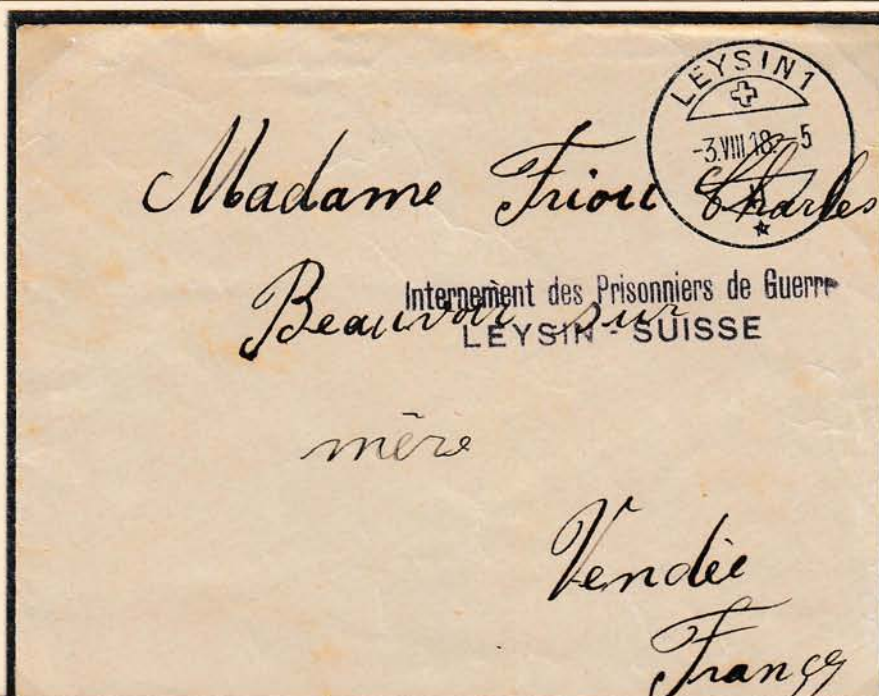 LEYSIN 1
-3.VIII.18.-5
Madame Friou Charles
Internement des Prisonniers de Guerre
Beauvoir sur
LEYSIN - SUISSE
mère
Vendée
France